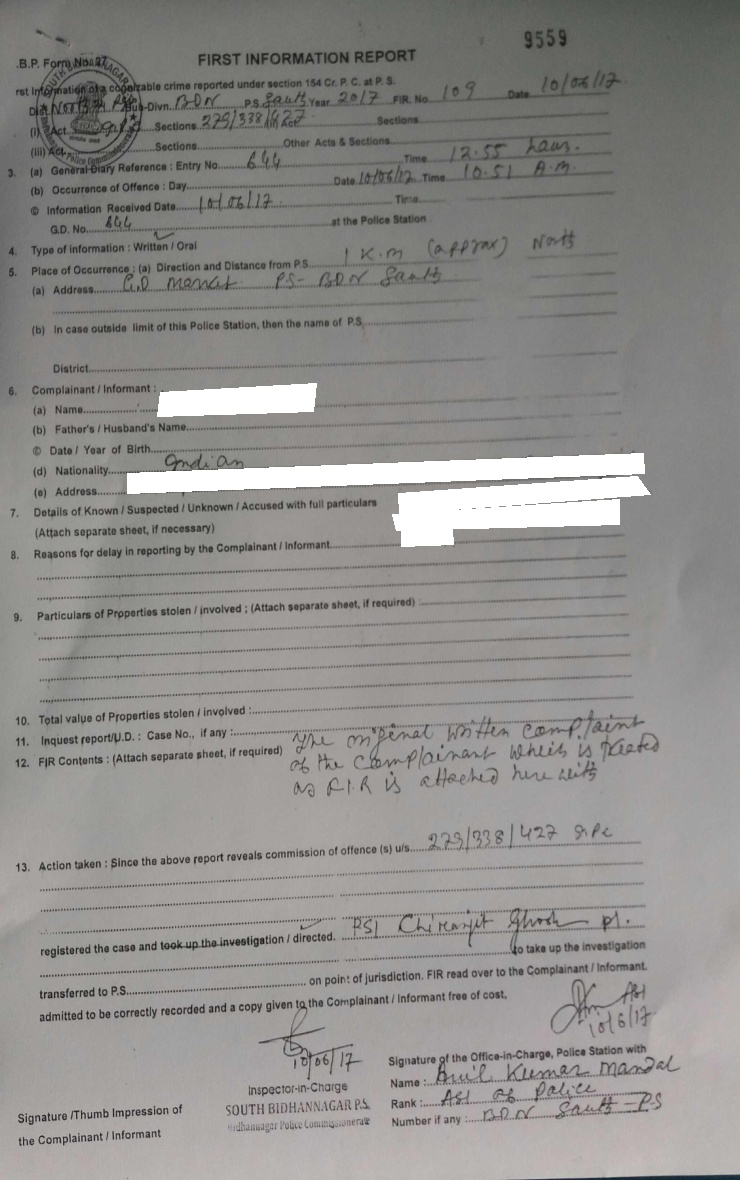 9559
.B.P. Form No. 27
FIRST INFORMATION REPORT
rst Information of a cognizable crime reported under section 154 Cr. P. C. at P. S.
Dist North 24 Sub-Divn. BDN P.S. South Year 2017 FIR. No. 109 Date 10/06/17
(i) Act Sections 279/338/427 Sections
(iii) Act Sections Other Acts & Sections
3. (a) General Diary Reference : Entry No. 644 Time 12.55 hours.
(b) Occurrence of Offence : Day Date 10/06/17 Time 10.51 A.M.
© Information Received Date 10/06/17. Time
G.D. No. 644 at the Police Station
4. Type of information : Written / Oral
5. Place of Occurrence : (a) Direction and Distance from P.S. 1 K.m (approx) North
(a) Address G.D Market PS- BDN South
(b) In case outside limit of this Police Station, then the name of P.S.
District
6. Complainant / Informant :
(a) Name
(b) Father's / Husband's Name
© Date / Year of Birth
(d) Nationality Indian
(e) Address
7. Details of Known / Suspected / Unknown / Accused with full particulars
(Attach separate sheet, if necessary)
8. Reasons for delay in reporting by the Complainant / Informant
9. Particulars of Properties stolen / involved ; (Attach separate sheet, if required) :
10. Total value of Properties stolen / involved :
11. Inquest report/U.D. : Case No., if any :
12. FIR Contents : (Attach separate sheet, if required) The original written complaint
of the complainant which is treated
as F.I.R is attached here with
13. Action taken : Since the above report reveals commission of offence (s) u/s. 279/338/427 IPC
registered the case and took up the investigation / directed. PSI Chiranjit Ghosh pl.
to take up the investigation
transferred to P.S. on point of jurisdiction. FIR read over to the Complainant / Informant.
admitted to be correctly recorded and a copy given to the Complainant / Informant free of cost.
ASI
10/6/17
10/06/17
Inspector-in-Charge
SOUTH BIDHANNAGAR P.S.
Bidhannagar Police Commissionerate
Signature of the Office-in-Charge, Police Station with
Name : Anil Kumar Mandal
Rank : ASI of Police
Number if any : BDN South-PS
Signature /Thumb Impression of
the Complainant / Informant